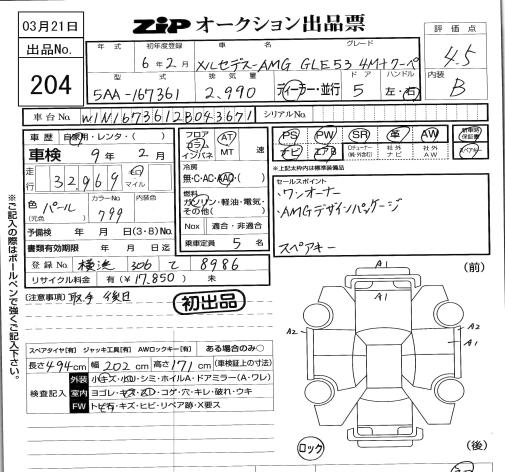 03月21日
出品No.
204
ZiP オークション出品票
年式 初年度登録 車名 グレード
6年2月 メルセデス-AMG GLE53 4M+クーペ
型式 排気量 ドア ハンドル
5AA-167361 2,990 ディーラー・並行 5 左・右
評価点
4.5
内装
B
車台No. W1N1673612B043671 シリアルNo.
車歴 自家用・レンタ・( )
車検 9年2月
走行 32969 キロ マイル
色(元色) パール カラーNo. 799 内装色
予備検 年 月 日(3・8)No.
書類有効期限 年 月 日迄
登録No. 横浜 306 て 8986
リサイクル料金 有(¥17,850) 無
フロア コラム インパネ AT MT 速
冷房
無・C・AC・AAC・( )
燃料
ガソリン・軽油・電気・その他( )
Nox 適合・非適合
乗車定員 5名
PS PW SR 革 AW 新車時保証書
ナビ エアB 社外ナビ 社外AW
※上記太枠は標準装備品
セールスポイント
・ワンオーナー
・AMGデザインパッケージ
スペアキー
[注意事項] 取手 後日
初出品
※ご記入の際はボールペンで強くご記入下さい。
スペアタイヤ[有] ジャッキ工具[有] AWロックキー[有] ある場合のみ○
長さ494cm 幅202cm 高さ171cm (車検証上の寸法)
検査記入
外装 小キズ・小凹・シミ・ホイルA・ドアミラー(A・ワレ)
室内 ヨゴレ・キズ・スレ・コゲ・穴・キレ・破れ・ウキ
FW トビ石・キズ・ヒビ・リペア跡・X要ス
(前)
A1
A1
A2
A2
A1
ロック
(後)